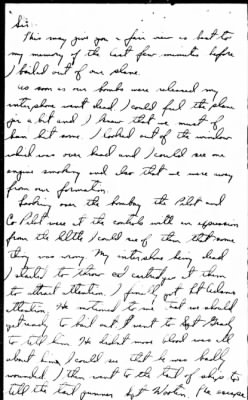 Sir:
This may give you a fair view as best to
my memory of the last few minutes before
I bailed out of our plane.
As soon as our bombs were released my
interphone went dead I could feel the plane
jir a bit and I knew that we must of
been hit some. I looked out of the window
which was over head and I could see one
engine smoking and also that we were away
from our formation.
Looking over the bomb bay the Pilot and
Co Pilot were at the controls with an expression
from the little I could see of them that some
thing was wrong. My interphone being dead
I started to throw cartridges at them
to attract attention. I finally got Lt
attention. He motioned to me that we should
get ready to bail out. I went to Sgt
to tell him. He hadn't blood was all
about him, I could see that he was badly
wounded. I then went to the tail of ship to
tell the tail gunner Sgt He